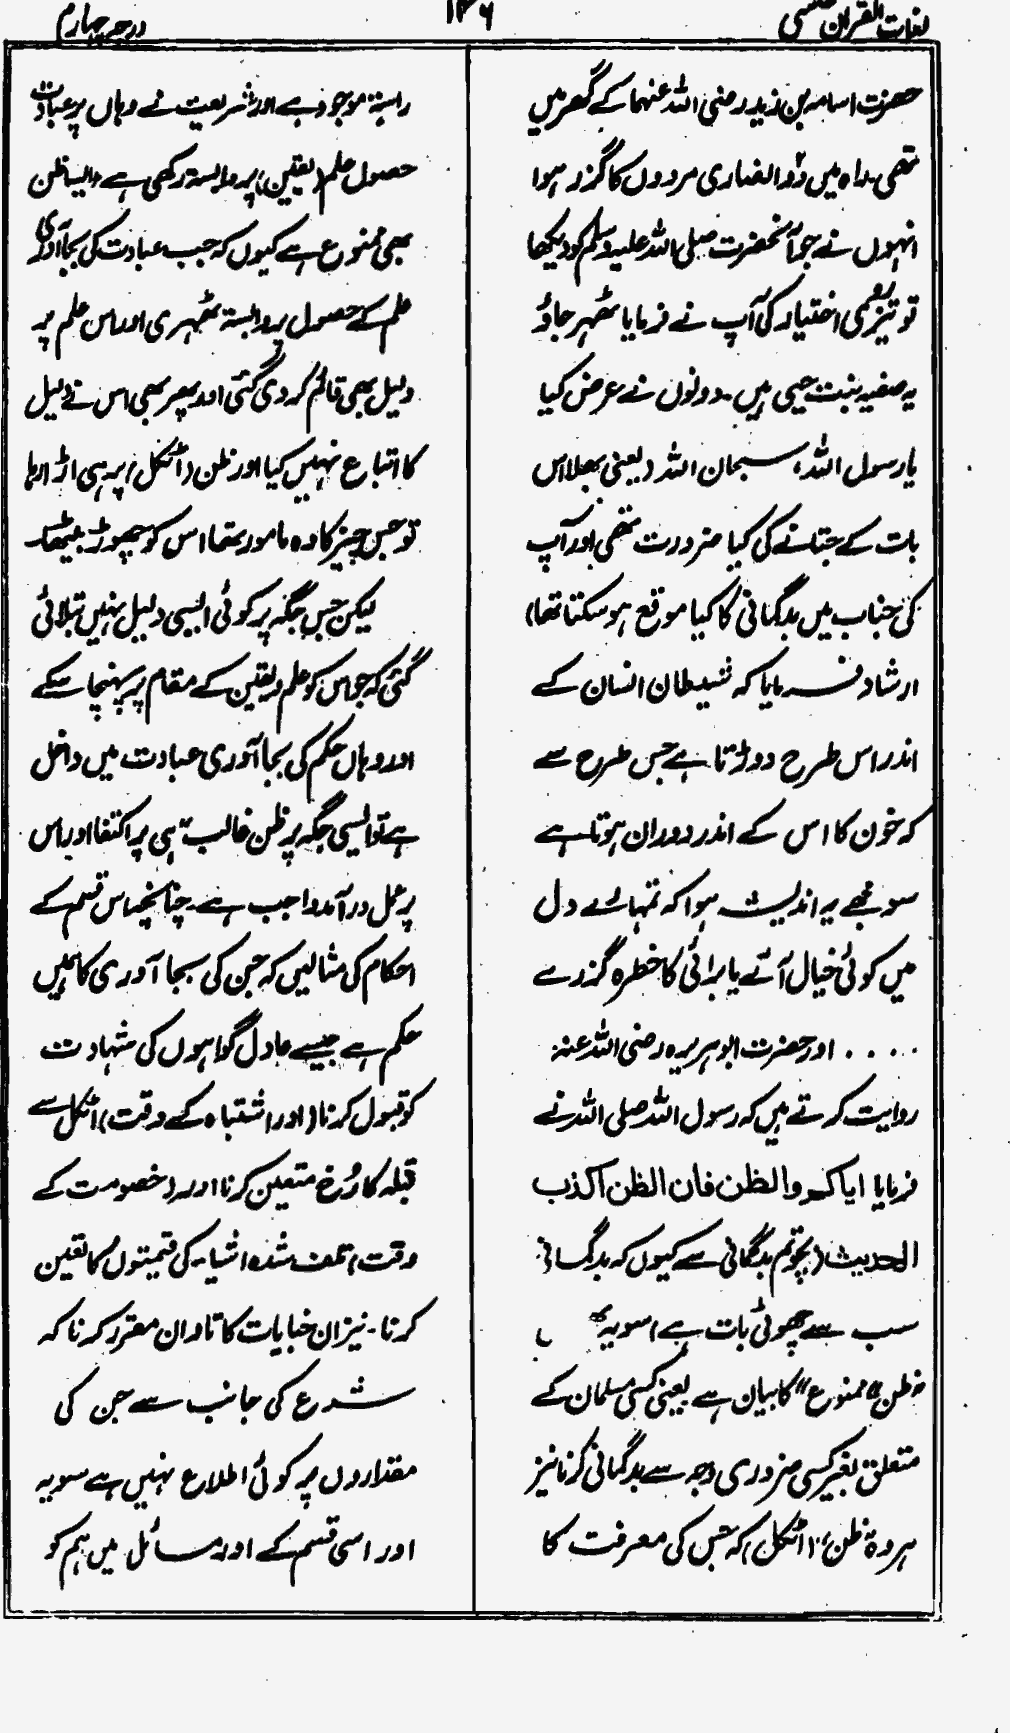 لغات القرآن
۱۳۶
درجہ چہارم
حضرت اسامہ بن زید رضی اللہ عنہما کے گھر میں
تھی۔ راہ میں دو انصاری مردوں کا گزر ہوا
انہوں نے جو آنحضرت صلی اللہ علیہ وسلم کو دیکھا
تو تیز روی اختیار کی آپ نے فرمایا ٹھہر جاؤ
یہ صفیہ بنت حیی ہیں۔ دونوں نے عرض کیا
یا رسول اللہ، سبحان اللہ (یعنی بھلا اس
بات کے جتانے کی کیا ضرورت تھی اور آپ
کی جناب میں بدگمانی کا کیا موقع ہو سکتا تھا)
ارشاد فرمایا کہ شیطان انسان کے
اندر اس طرح دوڑتا ہے جس طرح سے
کہ خون کا اس کے اندر دوران ہوتا ہے
سو مجھے یہ اندیشہ ہوا کہ تمہارے دل
میں کوئی خیال آئے یا برائی کا خطرہ گزرے
.... اور حضرت ابو ہریرہ رضی اللہ عنہ
روایت کرتے ہیں کہ رسول اللہ صلی اللہ نے
فرمایا ایاکم والظن فان الظن اکذب
الحدیث (بچو تم بدگمانی سے کیوں کہ بدگمانی
سب سے جھوٹی بات ہے) سو یہ
"ظن ممنوع" کا بیان ہے یعنی کسی مسلمان کے
متعلق بغیر کسی ضروری وجہ سے بدگمانی کرنا نیز
ہر وہ ظن (اٹکل) کہ جس کی معرفت کا
راستہ موجود ہے اور شریعت نے وہاں پر عبادت
حصول علم (یقین) پر وابستہ رکھی ہے، ایسا ظن
بھی ممنوع ہے کیوں کہ جب عبادت کی بجا آوری
علم کے حصول پر وابستہ ٹھہری اور اس علم پر
دلیل بھی قائم کر دی گئی اور پھر بھی اس نے دلیل
کا اتباع نہیں کیا اور ظن (اٹکل) پر ہی اڑا رہا
تو جس چیز کا وہ مامور تھا اس کو چھوڑ بیٹھا۔
لیکن جس جگہ پر کوئی ایسی دلیل نہیں بتلائی
گئی کہ جو اس کو علم و یقین کے مقام پر پہنچا سکے
اور وہاں حکم کی بجا آوری عبادت میں داخل
ہے تو ایسی جگہ پر ظن غالب ہی پر اکتفا اور اس
پر عمل درآمد واجب ہے۔ چنانچہ اس قسم کے
احکام کی مثالیں کہ جن کی بجا آوری کا ہمیں
حکم ہے جیسے عادل گواہوں کی شہادت
کو قبول کرنا (اور اشتباہ کے وقت) اٹکل سے
قبلہ کا رُخ متعین کرنا اور (خصومت کے
وقت) تلف شدہ اشیاء کی قیمتوں کا تعین
کرنا۔ نیز ان جنایات کا تاوان مقرر کرنا کہ
شرع کی جانب سے جن کی
مقداروں پر کوئی اطلاع نہیں ہے سو یہ
اور اسی قسم کے اور مسائل میں ہم کو